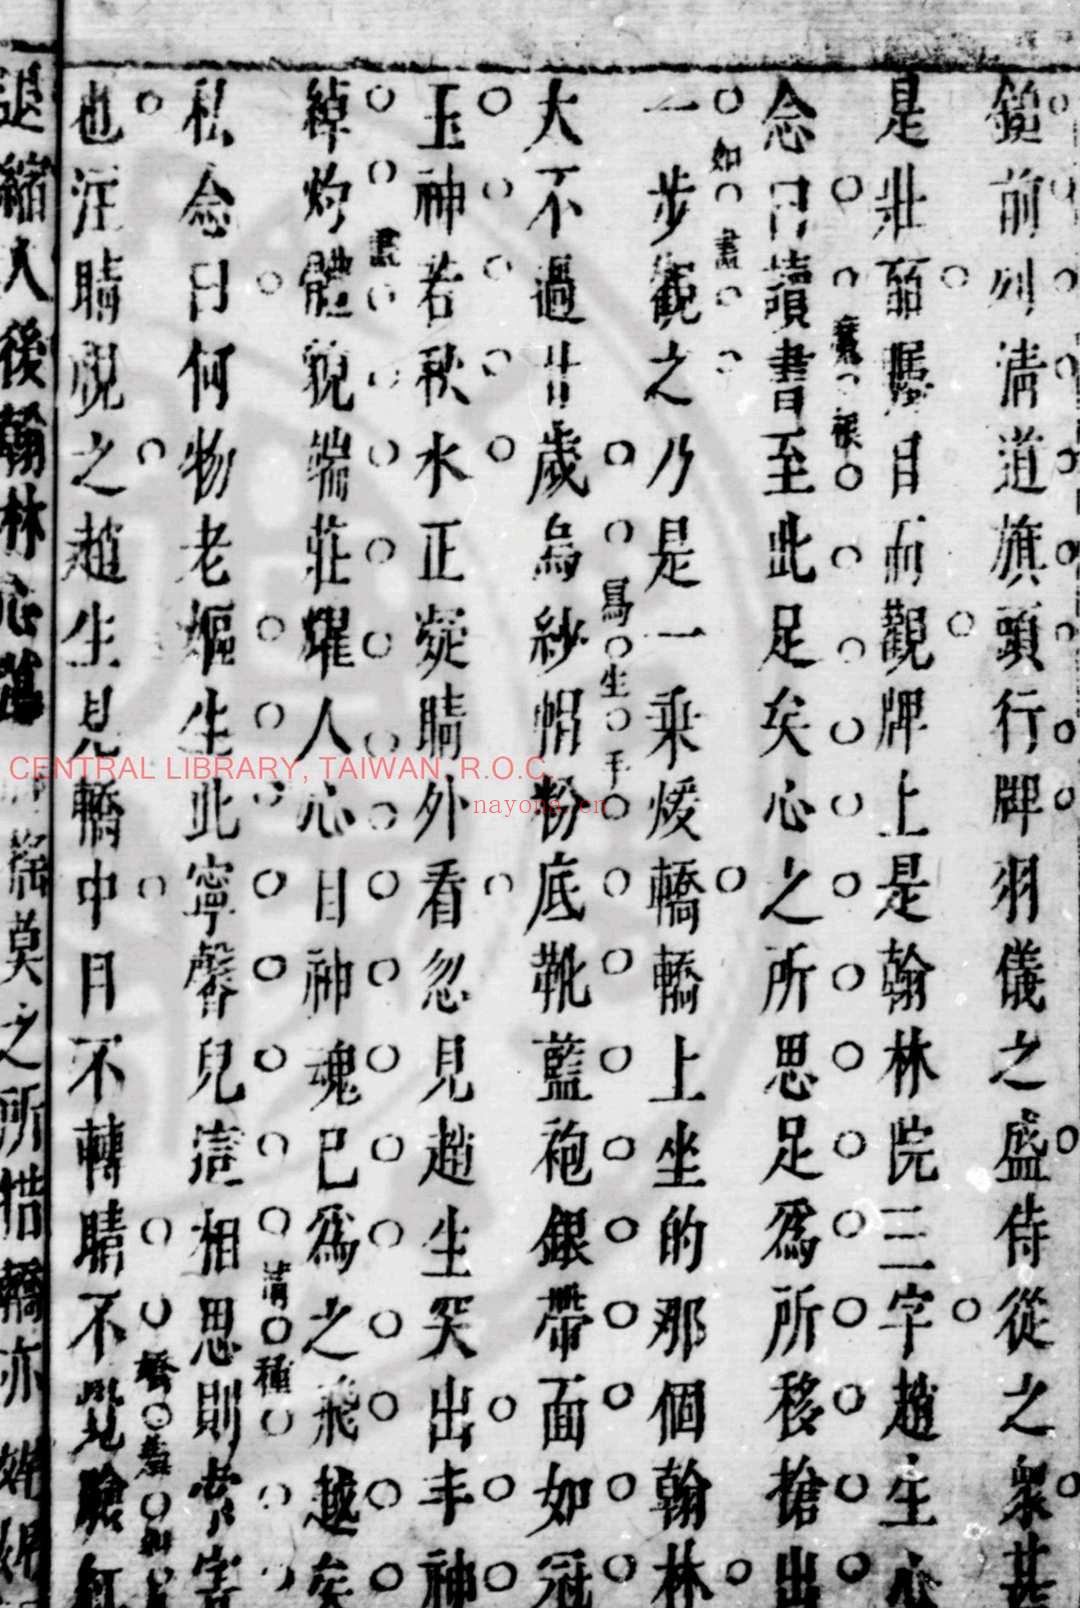 鎗前列清道旗頭行牌羽儀之盛侍從之衆甚
是壯麗矚目而觀牌上是翰林院三字趙生心
念曰讀書至此足矣心之所思足爲所移搶出
一步觀之乃是一乘煖轎轎上坐的那個翰林
大不過廿歲烏紗帽粉底靴藍袍銀帶面如冠
玉神若秋水正凝睛外看忽見趙生突出丰神
綽灼體貌端莊耀人心目神魂已爲之飛越矣
私念曰何物老嫗生此寧馨兒這相思則索害
也注睛視之趙生見轎中目不轉睛不覺臉紅
退縮人後翰林心
莫之所措轎亦
如
畫
病
根
爲
生
手
畫
情
種
CENTRAL LIBRARY, TAIWAN R.O.C.
nayona.cn